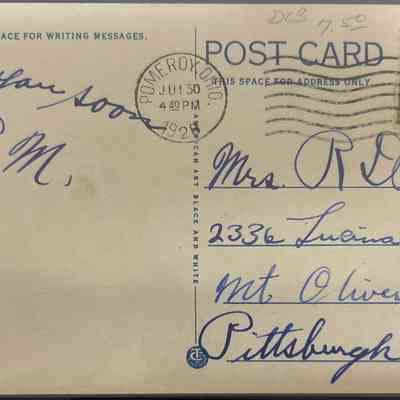 ACE FOR WRITING MESSAGES.
you soon
M.
DCB 7.50
POST CARD
THIS SPACE FOR ADDRESS ONLY
POMEROY, OHIO.
JUL 30
4 30 PM
192
AMERICAN ART BLACK AND WHITE
Mrs. R D
2336 Lucina
Mt Oliver
Pittsburgh